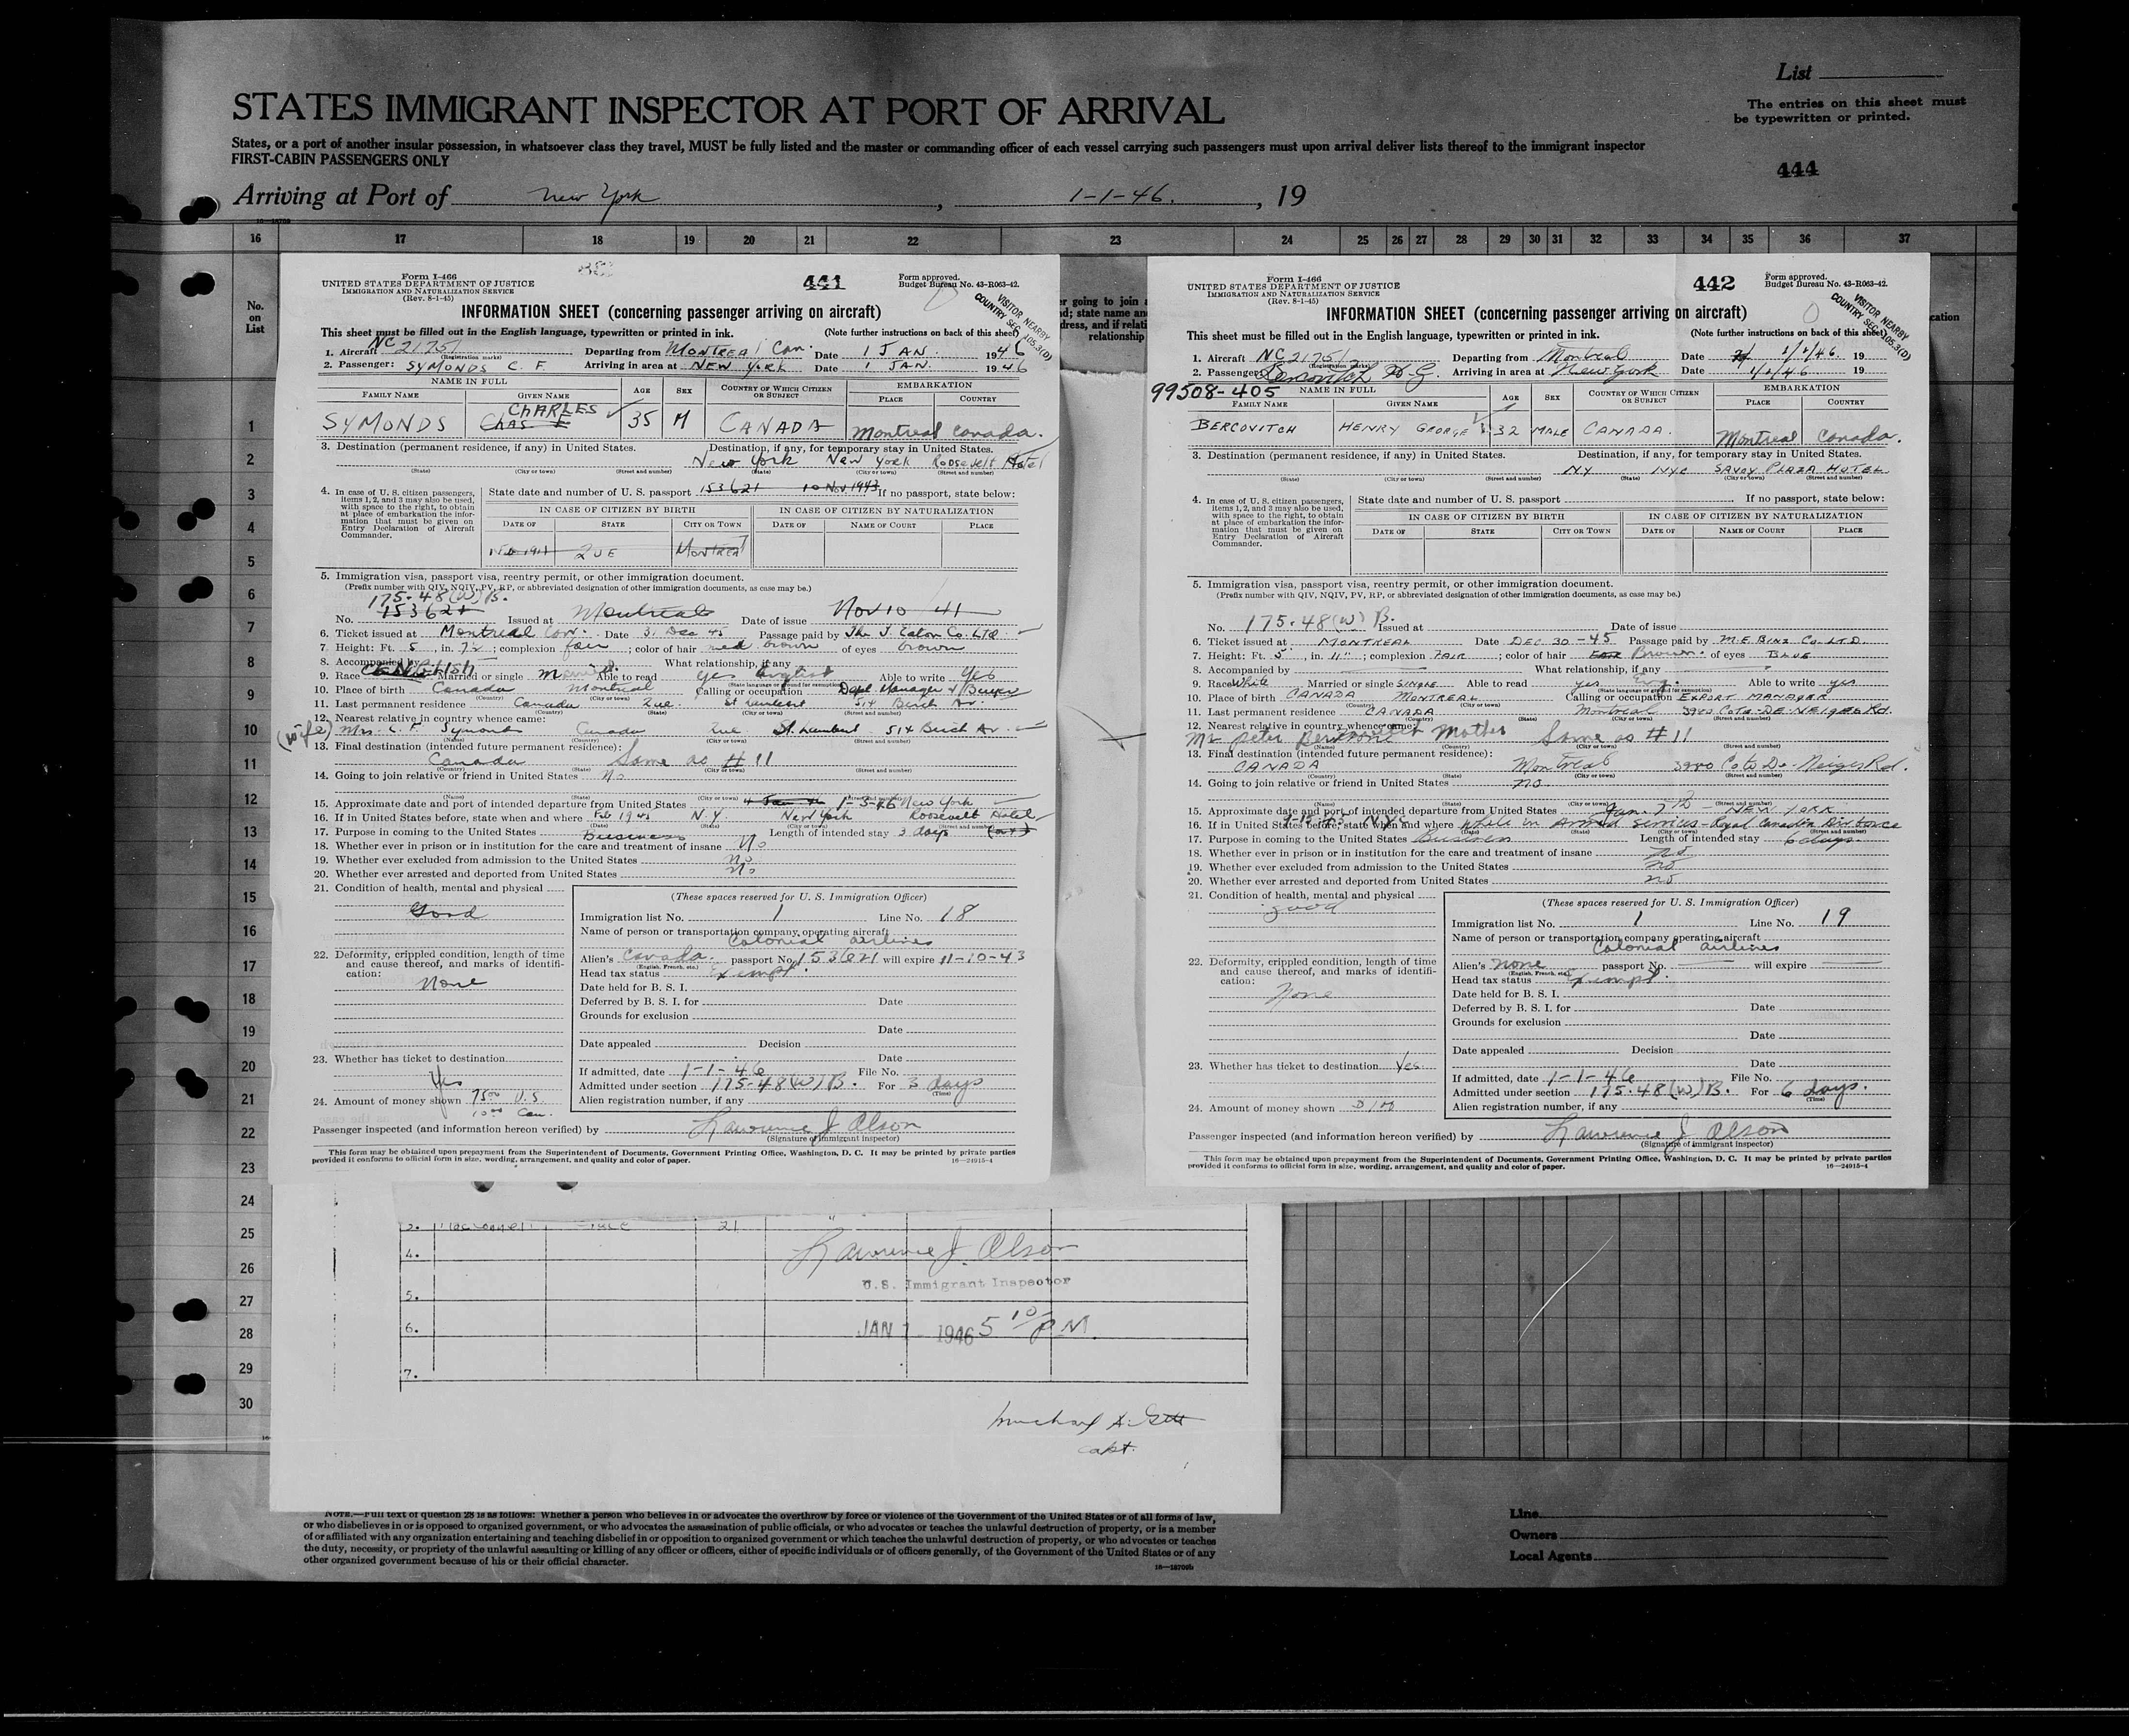 List
STATES IMMIGRANT INSPECTOR AT PORT OF ARRIVAL
The entries on this sheet must
be typewritten or printed.
States, or a port of another insular possession, in whatsoever class they travel, MUST be fully listed and the master or commanding officer of each vessel carrying such passengers must upon arrival deliver lists thereof to the immigrant inspector
FIRST-CABIN PASSENGERS ONLY
444
Arriving at Port of New York, 1-1-46., 19
16 17 18 19 20 21 22 23 24 25 26 27 28 29 30 31 32 33 34 35 36 37
No.
on
List
1
2
3
4
5
6
7
8
9
10
11
12
13
14
15
16
17
18
19
20
21
22
23
24
25
26
27
28
29
30
Form I-466
UNITED STATES DEPARTMENT OF JUSTICE
IMMIGRATION AND NATURALIZATION SERVICE
(Rev. 8-1-45)
441
Form approved.
Budget Bureau No. 43-R063-42.
VISITOR NEARBY
COUNTRY SEC. 105.3(D)
INFORMATION SHEET (concerning passenger arriving on aircraft)
This sheet must be filled out in the English language, typewritten or printed in ink. (Note further instructions on back of this sheet)
1. Aircraft NC 21751 Departing from MONTREAL Can. Date 1 JAN. 1946
(Registration marks)
2. Passenger: SYMONDS C. F. Arriving in area at NEW YORK Date 1 JAN. 1946
NAME IN FULL AGE SEX COUNTRY OF WHICH CITIZEN OR SUBJECT EMBARKATION
FAMILY NAME GIVEN NAME PLACE COUNTRY
SYMONDS CHARLES CHAS F 35 M CANADA Montreal Canada.
3. Destination (permanent residence, if any) in United States. Destination, if any, for temporary stay in United States.
New York New York Roosevelt Hotel
(State) (City or town) (Street and number) (State) (City or town) (Street and number)
4. In case of U. S. citizen passengers, items 1, 2, and 3 may also be used, with space to the right, to obtain at place of embarkation the information that must be given on Entry Declaration of Aircraft Commander.
State date and number of U. S. passport 153621 10 Nov 1943 If no passport, state below:
IN CASE OF CITIZEN BY BIRTH IN CASE OF CITIZEN BY NATURALIZATION
DATE OF STATE CITY OR TOWN DATE OF NAME OF COURT PLACE
QUE MONTREAL
5. Immigration visa, passport visa, reentry permit, or other immigration document.
(Prefix number with QIV, NQIV, PV, RP, or abbreviated designation of immigration documents, as case may be.)
175.48(W)B.
No. 153621 Issued at Montreal Date of issue Nov 10 41
6. Ticket issued at Montreal Date 31 Dec 45 Passage paid by The T. Eaton Co. LTD
7. Height: Ft. 5, in. 7½; complexion fair; color of hair med brown of eyes brown
8. Accompanied by What relationship, if any
9. Race ENGLISH Married or single Able to read yes English Able to write yes
(State language or ground for exemption)
10. Place of birth Canada Montreal Calling or occupation Dept. Manager & Buyer
(Country) (City or town)
11. Last permanent residence Canada Que. St Lambert 514 Birch Av.
(Country) (State) (City or town) (Street and number)
12. Nearest relative in country whence came:
(wife) Mrs. C. F. Symonds Canada Que. St. Lambert 514 Birch Av.
(Name) (Country) (City or town) (Street and number)
13. Final destination (intended future permanent residence):
Canada Same as # 11
(Country) (State) (City or town) (Street and number)
14. Going to join relative or friend in United States No
(Name) (State) (City or town) (Street and number)
15. Approximate date and port of intended departure from United States 4 Jan 46 1-3-46 New York
16. If in United States before, state when and where Feb 1945 N.Y. New York Roosevelt Hotel
(Date) (State) (City or town) (Street and number)
17. Purpose in coming to the United States Business Length of intended stay 3 days
18. Whether ever in prison or in institution for the care and treatment of insane No
19. Whether ever excluded from admission to the United States no
20. Whether ever arrested and deported from United States no
21. Condition of health, mental and physical
Good
22. Deformity, crippled condition, length of time and cause thereof, and marks of identification:
None
23. Whether has ticket to destination
Yes
24. Amount of money shown 75.00 U.S.
10.00 Can.
(These spaces reserved for U. S. Immigration Officer)
Immigration list No. 1 Line No. 18
Name of person or transportation company operating aircraft
Colonial airlines
Alien's Canada. passport No. 153621 will expire 11-10-43
(English, French, etc.)
Head tax status Exempt.
Date held for B. S. I.
Deferred by B. S. I. for Date
Grounds for exclusion
Date
Date appealed Decision
Date
If admitted, date 1-1-46 File No.
Admitted under section 175.48(W)B. For 3 days
(Time)
Alien registration number, if any
Passenger inspected (and information hereon verified) by Lawrence J Olson
(Signature of immigrant inspector)
This form may be obtained upon prepayment from the Superintendent of Documents, Government Printing Office, Washington, D. C. It may be printed by private parties
provided it conforms to official form in size, wording, arrangement, and quality and color of paper. 16—24915-4
Form I-466
UNITED STATES DEPARTMENT OF JUSTICE
IMMIGRATION AND NATURALIZATION SERVICE
(Rev. 8-1-45)
442
Form approved.
Budget Bureau No. 43-R063-42.
VISITOR NEARBY
COUNTRY SEC. 105.3(D)
INFORMATION SHEET (concerning passenger arriving on aircraft)
This sheet must be filled out in the English language, typewritten or printed in ink. (Note further instructions on back of this sheet)
1. Aircraft NC 21751 Departing from Montreal Date 1/1/46. 19
(Registration marks)
2. Passenger: Bercovitch H G. Arriving in area at New York Date 1/1/46 19
99508-405
NAME IN FULL AGE SEX COUNTRY OF WHICH CITIZEN OR SUBJECT EMBARKATION
FAMILY NAME GIVEN NAME PLACE COUNTRY
BERCOVITCH HENRY GEORGE 32 MALE CANADA. Montreal Canada.
3. Destination (permanent residence, if any) in United States. Destination, if any, for temporary stay in United States.
NY NYC SAVOY PLAZA HOTEL
(State) (City or town) (Street and number) (State) (City or town) (Street and number)
4. In case of U. S. citizen passengers, items 1, 2, and 3 may also be used, with space to the right, to obtain at place of embarkation the information that must be given on Entry Declaration of Aircraft Commander.
State date and number of U. S. passport If no passport, state below:
IN CASE OF CITIZEN BY BIRTH IN CASE OF CITIZEN BY NATURALIZATION
DATE OF STATE CITY OR TOWN DATE OF NAME OF COURT PLACE
5. Immigration visa, passport visa, reentry permit, or other immigration document.
(Prefix number with QIV, NQIV, PV, RP, or abbreviated designation of immigration documents, as case may be.)
No. 175.48(W) B. Issued at Date of issue
6. Ticket issued at MONTREAL Date DEC 30-45 Passage paid by M.E. BINZ Co. LTD.
7. Height: Ft. 5, in. 11"; complexion FAIR; color of hair Brown. of eyes BLUE
8. Accompanied by What relationship, if any
9. Race White Married or single SINGLE Able to read yes Eng. Able to write yes
(State language or ground for exemption)
10. Place of birth CANADA MONTREAL Calling or occupation EXPORT MANAGER
(Country) (City or town)
11. Last permanent residence CANADA Montreal 3940 COTE-DE-NEIGES Rd.
(Country) (State) (City or town) (Street and number)
12. Nearest relative in country whence came:
Peter Mother Same as # 11
(Name) (Country) (City or town) (Street and number)
13. Final destination (intended future permanent residence):
CANADA Montreal 3940 Cote De-Neiges Rd.
(Country) (State) (City or town) (Street and number)
14. Going to join relative or friend in United States no
(Name) (State) (City or town) (Street and number)
15. Approximate date and port of intended departure from United States Jan. 7th - NEW YORK
16. If in United States before, state when and where NYC while in Armed Services - Royal Canadian Air Force
(Date) (State) (City or town) (Street and number)
17. Purpose in coming to the United States Business Length of intended stay 6 days.
18. Whether ever in prison or in institution for the care and treatment of insane no
19. Whether ever excluded from admission to the United States no
20. Whether ever arrested and deported from United States no
21. Condition of health, mental and physical
good
22. Deformity, crippled condition, length of time and cause thereof, and marks of identification:
None
23. Whether has ticket to destination Yes
24. Amount of money shown
(These spaces reserved for U. S. Immigration Officer)
Immigration list No. 1 Line No. 19
Name of person or transportation company operating aircraft
Colonial airlines
Alien's none passport No. will expire
(English, French, etc.)
Head tax status Exempt.
Date held for B. S. I.
Deferred by B. S. I. for Date
Grounds for exclusion
Date
Date appealed Decision
Date
If admitted, date 1-1-46 File No.
Admitted under section 175.48(W)B. For 6 days.
(Time)
Alien registration number, if any
Passenger inspected (and information hereon verified) by Lawrence J Olson
(Signature of immigrant inspector)
This form may be obtained upon prepayment from the Superintendent of Documents, Government Printing Office, Washington, D. C. It may be printed by private parties
provided it conforms to official form in size, wording, arrangement, and quality and color of paper. 16—24915-4
21
4. Lawrence J. Olson
U.S. Immigrant Inspector
5.
6. JAN 1 - 1946 5 10 PM.
7.
capt.
NOTE.—Full text of question 28 is as follows: Whether a person who believes in or advocates the overthrow by force or violence of the Government of the United States or of all forms of law,
or who disbelieves in or is opposed to organized government, or who advocates the assassination of public officials, or who advocates or teaches the unlawful destruction of property, or is a member
of or affiliated with any organization entertaining and teaching disbelief in or opposition to organized government or which teaches the unlawful destruction of property, or who advocates or teaches
the duty, necessity, or propriety of the unlawful assaulting or killing of any officer or officers, either of specific individuals or of officers generally, of the Government of the United States or of any
other organized government because of his or their official character.
Line
Owners
Local Agents